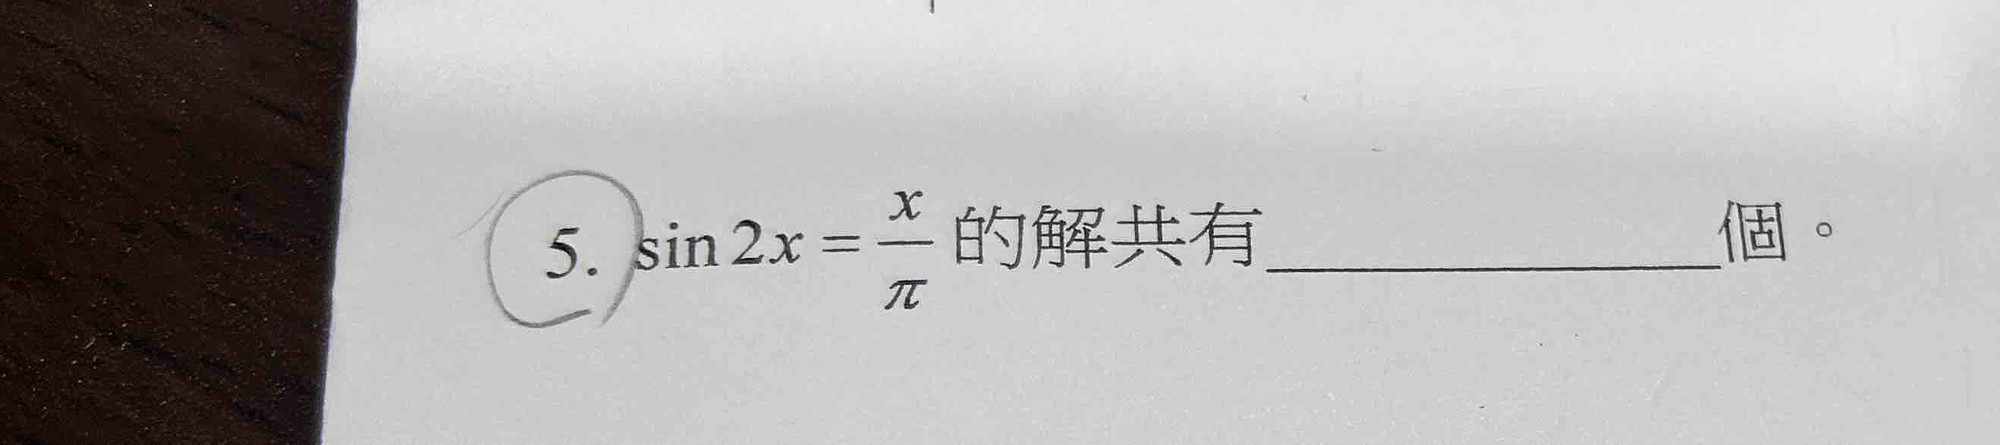 5. sin 2x = x/π 的解共有__________個。